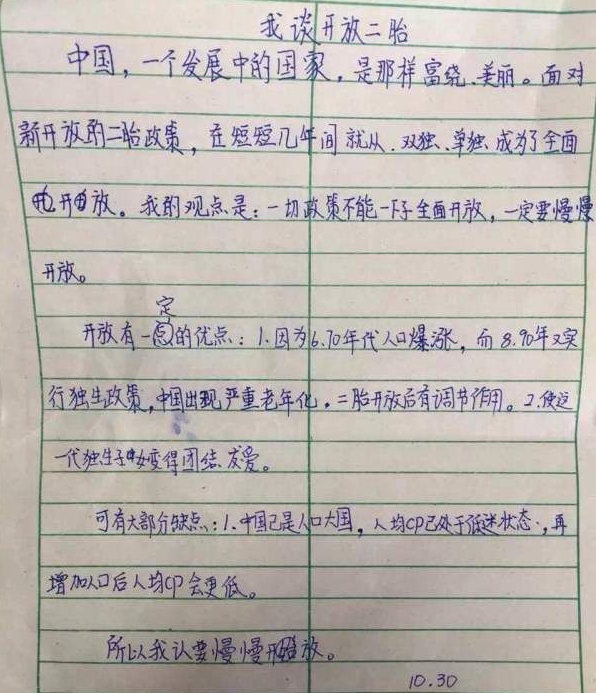 我谈开放二胎
中国，一个发展中的国家，是那样富饶、美丽。面对
新开放的二胎政策，在短短几年间就从.双独、单独、成为了全面
开放。我的观点是：一切政策不能一下子全面开放，一定要慢慢
开放。
定
开放有一的优点：1.因为6.70年代人口爆涨，而8.90年又实
行独生政策，中国出现严重老年化，二胎开放后有调节作用。2.使这
一代独生子女变得团结友爱。
可有大部分缺点：1.中国已是人口大国，人均CP已处于低迷状态，再
增加人口后人均CP会更低。
所以我认要慢慢开放。
10.30